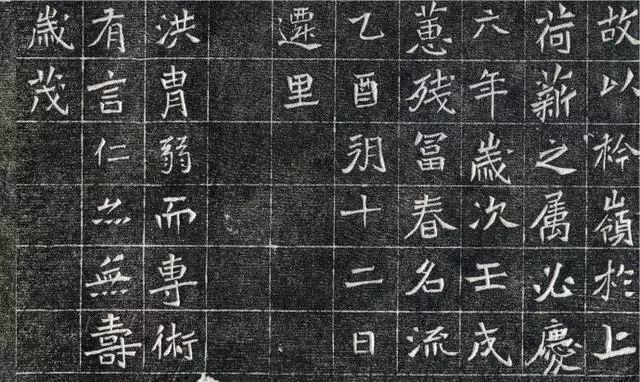 故以衿嶺於上
荷薪之属必慶
六年歲次壬戌
蕙残冨春名流
乙酉朔十二日
遷里
洪胄弱而專術
有言仁亦無壽
歲茂